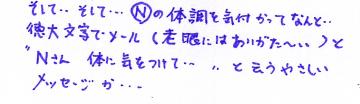 そして‥そして… Ⓝの体調を気付かってなんと‥
徳大文字でメール(老眼にはありがた〜い)と
"Nさん 体に気をつけて…〃と云うやさしい
メッセージが…